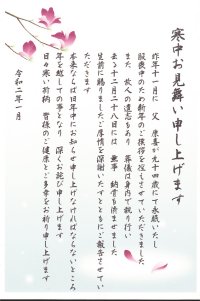 寒中お見舞い申し上げます
昨年十一月に 父 康喜が九十四歳にて永眠いたし
服喪中のため新年のご挨拶を控えさせていただきました
また 故人の遺志もあり 葬儀は身内で執り行い
去る十二月二十八日には 無事 納骨を済ませました
生前に賜りましたご厚情を深謝いたすとともにご報告させてい
ただきます
本来ならば旧年中にお知らせ申し上げなければならないところ
年を越しての事となり 深くお詫び申し上げます
日々寒い折柄 皆様のご健康とご多幸をお祈り申し上げます
令和二年一月